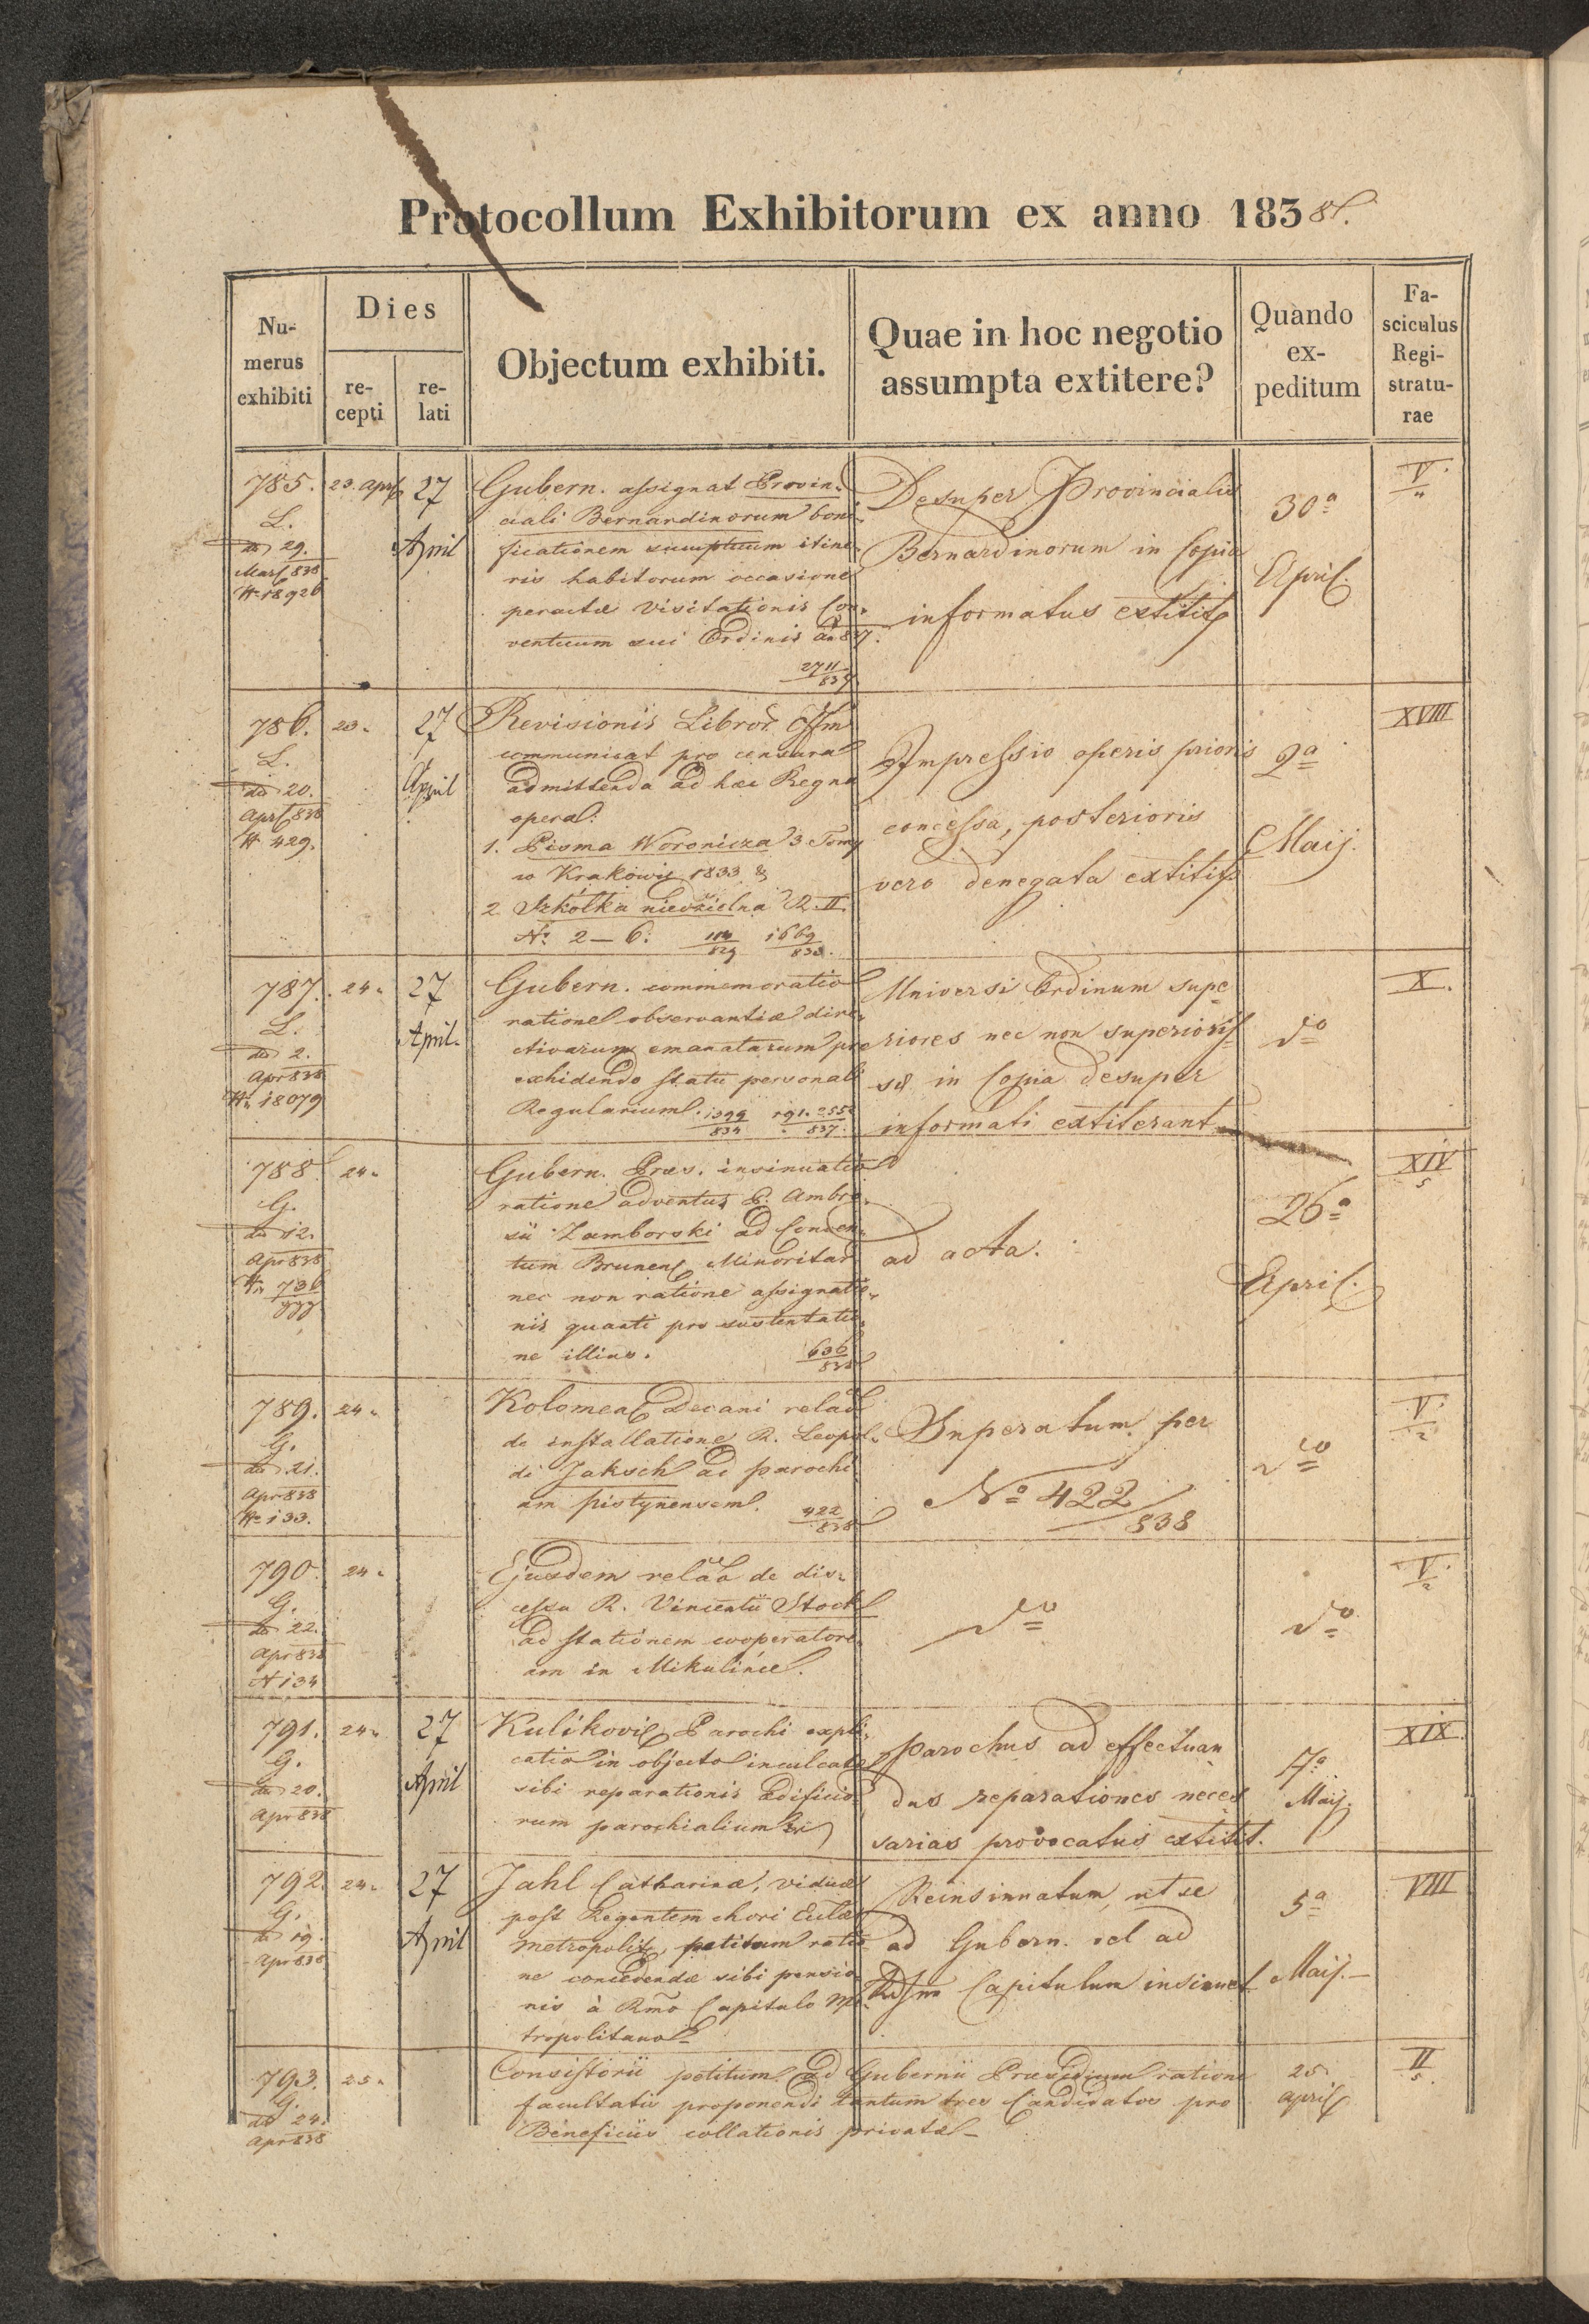 Protocollum Exhibitorum ex anno 1838.
Nu-
merus
exhibiti
Dies
re-
cepti
re-
lati
Objectum exhibiti.
Quae in hoc negotio
assumpta extitere?
Quando
ex-
peditum
Fa-
sciculus
Regi-
stratu-
rae
785.
L.
dd 29.
Mart 838
N 18926
23. April
27
April
Gubern. assignat Provin-
ciali Bernardinorum boni-
ficationem sumptuum itine-
ris habitorum occasione
peractae visitationis Con-
ventuum sui Ordinis a 837.
2711
837
Desuper Provincialis
Bernardinorum in Copia
informatus extitit
30a
April.
V.
786.
L.
dd 20.
Apr 838
N 429.
23.
27
April
Revisionis Libror. Offm
communicat pro censura
admittenda ad haec Regna
opera:
1. Pisma Woronicza 3 Tomy
w Krakowie 1833 &
2 Szkółka niedzielna R. II.
No. 2-6. 1669
833.
Impressio operis prioris
concessa, posterioris
vero denegata extitit
2a
Maij.
XVIII
787.
L.
dd 2.
Apr 838
N. 18079
24.
27
April.
Gubern. commemoratio
ratione observantiae dire-
ctivarum emanatarum pro
exhibendo statu personali
Regularium. 1399
834
191. 255
837.
Universi Ordinum supe
riores nec non superioriss
sae in Copia desuper
informati extiterant
do
X.
788
G.
dd 12.
Apr 838
N. 736
24.
Gubern. Praes. insinuatio
ratione adventus P. Ambro-
sii Zamborski ad Conven-
tum Brunens Minoritar
nec non ratione assignatio-
nis quanti pro sustentatio-
ne illius.
636
838
ad acta.
26a
April.
XIV
5
789.
G.
dd 21.
Apr 838
N. 133.
24.
Kolomeae Decani relao
de installatione R. Leopol-
di Jaksch ad parochi
am pistynensem.
422
838
Superatum per
No 422/838
do
V.
2
790.
G.
dd 22.
Apr 838
N 134
24.
Ejusdem relao de dis-
cessu R. Vincentii Stock
ad stationem cooperatore-
am in Mikulince.
do
do
V.
2
791.
G.
dd 20.
Apr 838
24.
27
April
Kulikovic Parochi expli-
catio in objecto inculcatae
sibi reparationis aedificio
rum parochialium
Parochus ad effectuan
das reparationes neces
sarias provocatus extitit.
Maij.
XIX.
792.
G.
dd 19.
Apr 838
24.
27
April
Jahl Catharinae, viduae
post Regentem chori Eccłae
Metropolit, petitum ratio
ne concedendae sibi pensio
nis à Rmo Capitulo Me
tropolitano
Reinsinuatum, ut se
ad Gubern. vel ad
Capitulum insinuet
5a
Maij.
VIII
793.
G.
dd 24.
Apr 838
25.
Consistorii petitum ad Gubernii Praesidium ratione
facultatis proponendi tantum tres Candidatos pro
Beneficiis collationis privatae
25
April
II
5.